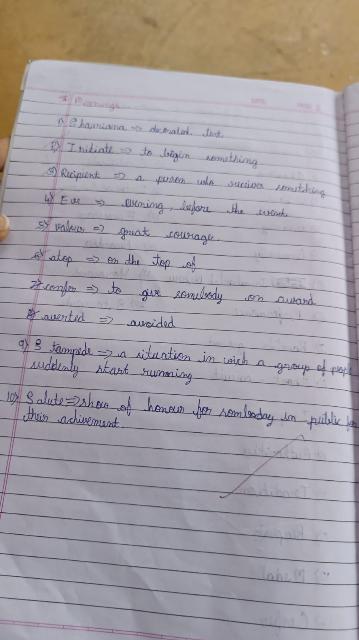 * Meanings
1) Shamiana => decorated tent
2) Initiate => to begin something
3) Recipient => a person who receives something
4) Eve => evening, before the event
5) valour => great courage
6) atop => on the top of
7) confer => to give somebody an award
8) averted => avoided
9) Stampede => a situation in wich a group of peopl
suddenly start running
10) Salute => show of honour for sombooday in public for
their achivement